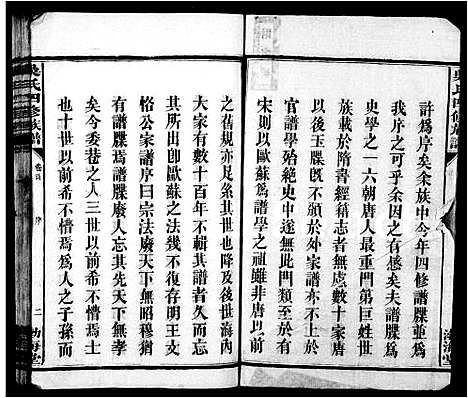 許為序矣余族中今年四修譜牒並為
我序之可乎余因之有感矣夫譜牒為
史學之一六朝唐人最重門第巨姓世
族載於隋書經籍志者無慮數十家唐
後以玉牒既不頒於外家譜亦不上於
官譜學殆絕史中遂無此門類至於有
宋則以歐蘇為譜學之祖雖非唐以前
之舊規亦足系其世也降及後世海內
大家有數十百年不輯其譜者問以世系
其所出即歐蘇之法幾不復存矣明穆猶
恪公家譜序曰宗法廢天下無世家
矣譜牒廢人忘其先天下無孝
矣今委巷之人三世以前有不憯焉者
也十世以前若不憯焉為人之子孫而
吳氏四修族譜
卷首
序
二
渤海堂